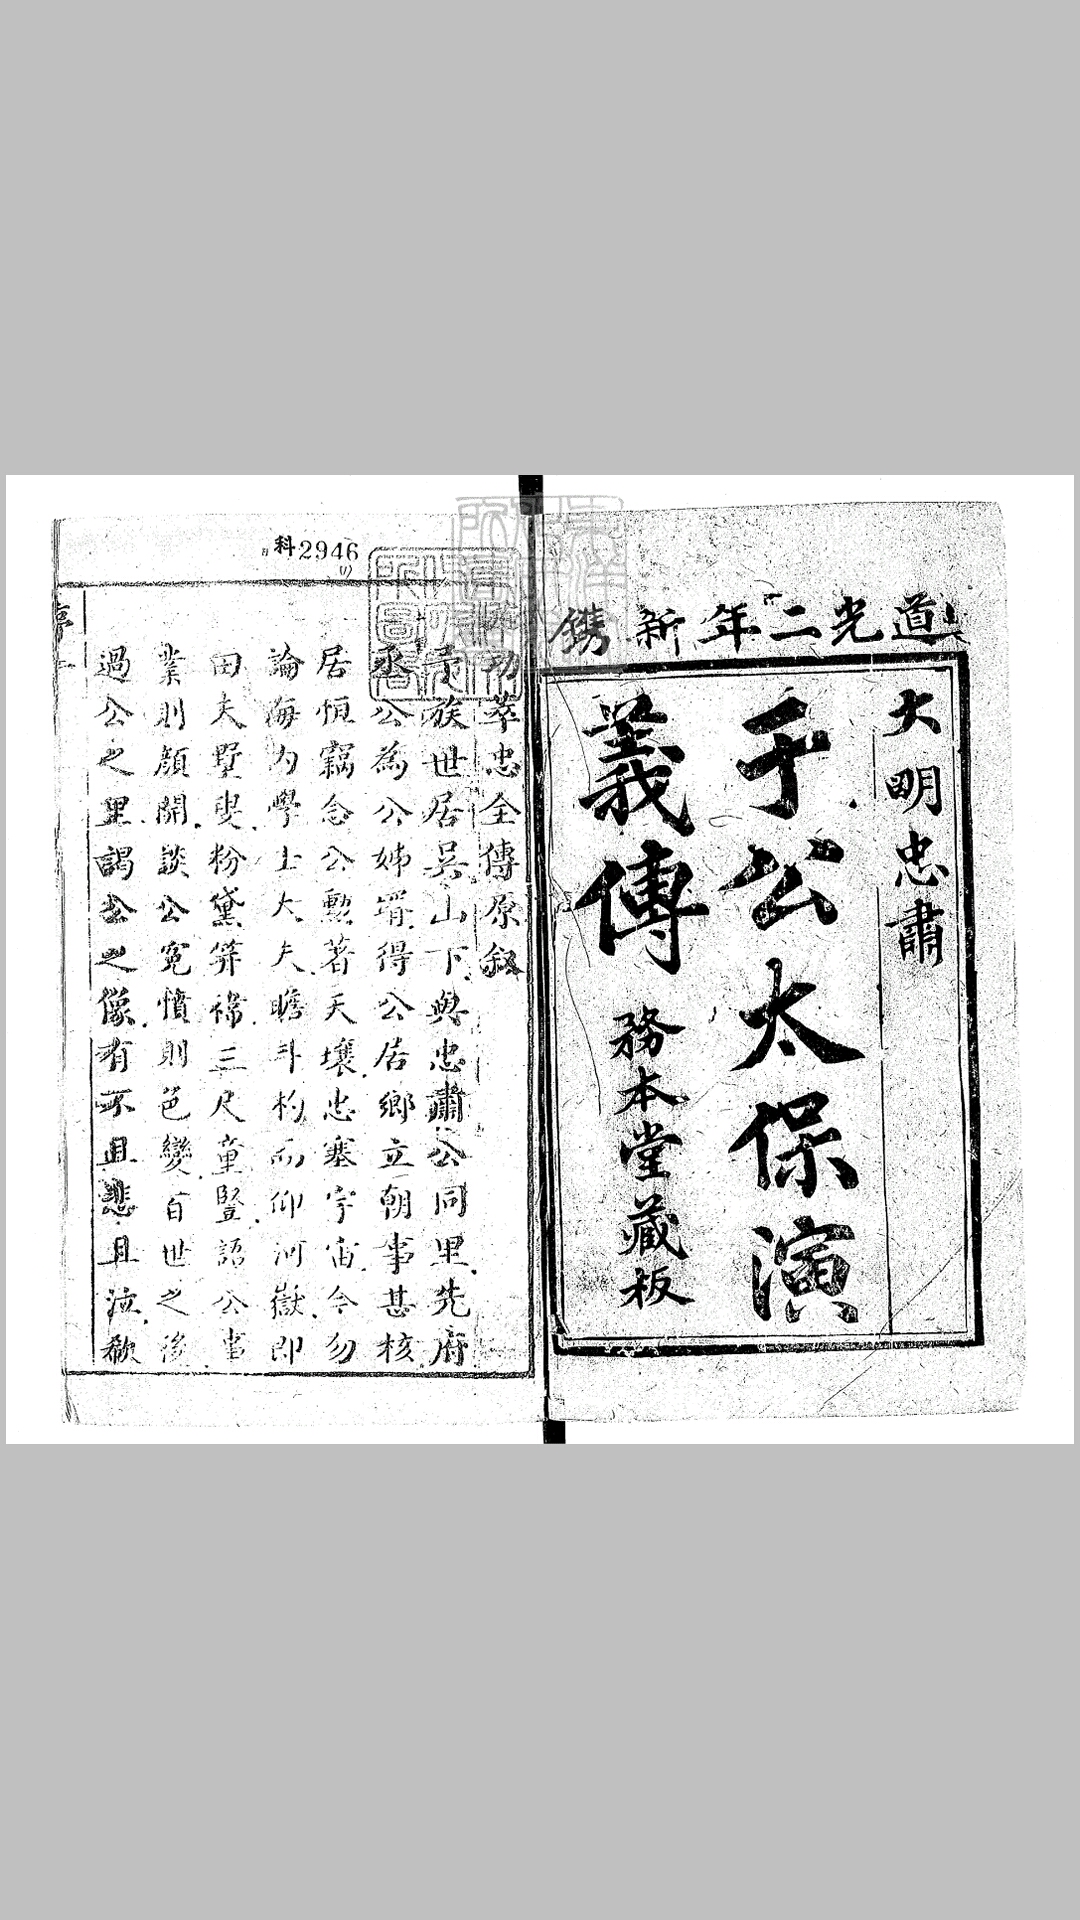 道光二年新鐫
大明忠肅
于公太保演
義傳
務本堂藏板
科2946
萃忠全傳原叙
予族世居吳山下與忠肅公同里先府
丞公為公姊壻得公居鄉立朝事甚核
居恒竊念公勲著天壤忠塞宇宙今勿
論海內學士大夫瞻斗杓而仰河嶽即
田夫墅叟粉黛笄褘三尺童豎語公事
業則顏開談公冤憤則色變百世之後
過公之里謁公之像有不且悲且泣欷